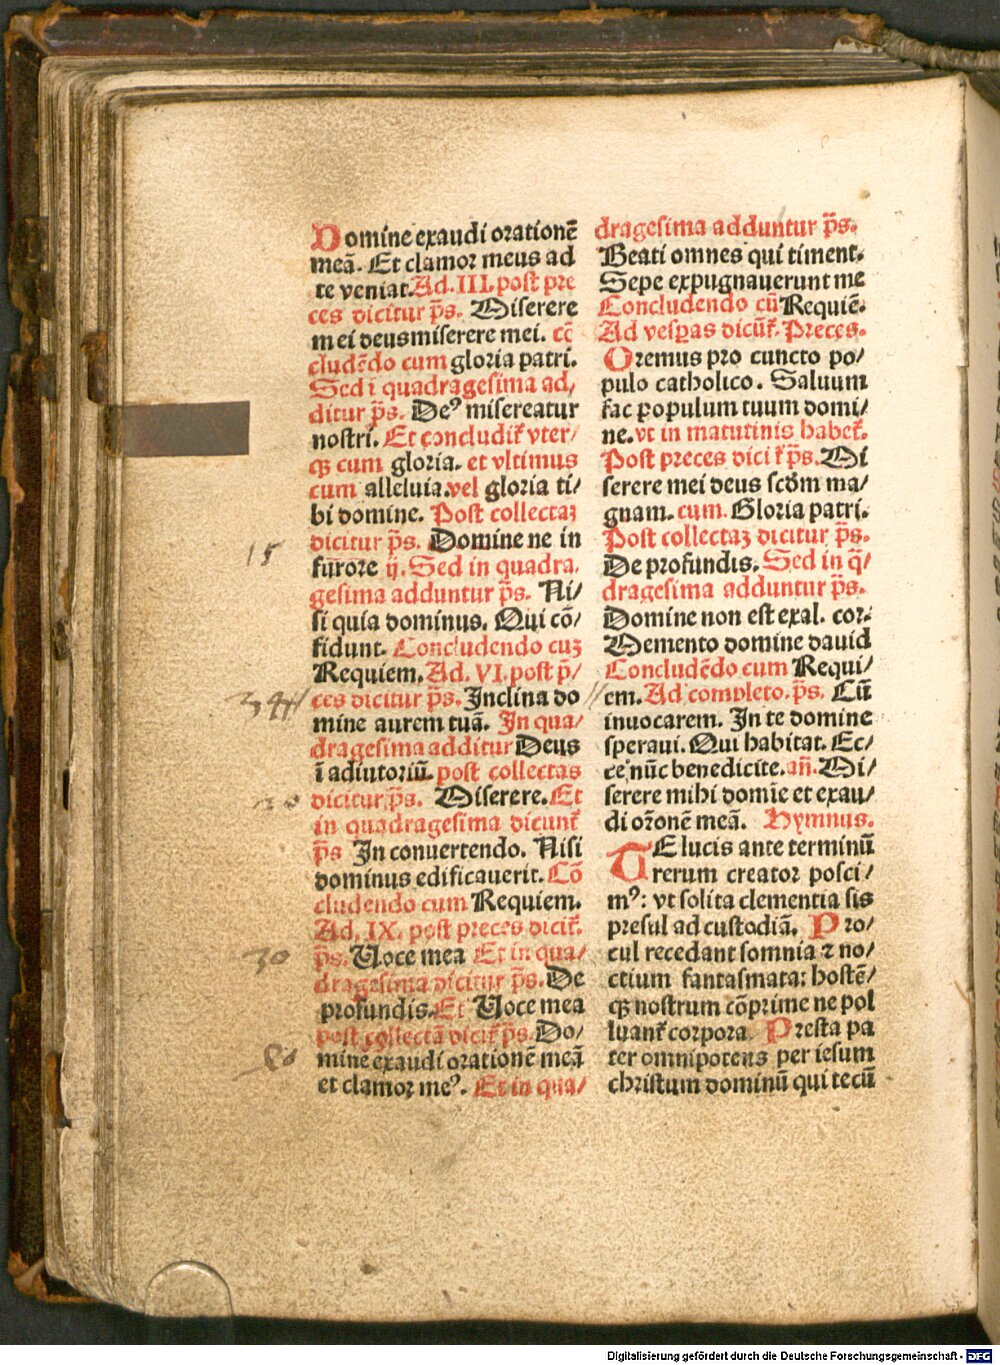 Domine exaudi orationē
meā. Et clamor meus ad
te veniat. Ad. III. post pre
ces dicitur p̄s. Miserere
mei deus miserere mei. cō
cludēdo cum gloria patri.
Sed ī quadragesima ad/
ditur p̄s. Deꝰ misereatur
nostri. Et concludit᷑ vter/
qꝫ cum gloria. et vltimus
cum alleluia. vel gloria ti/
bi domine. Post collectaꝫ
dicitur p̄s. Domine ne in
furore ij. Sed in quadra
gesima adduntur p̄s. Ni/
si quia dominus. Qui cō/
fidunt. Concludendo cuꝫ
Requiem. Ad. VI. post p̄/
ces dicitur p̄s. Inclina do
mine aurem tuā. In qua/
dragesima additur Deus
ī adiutoriū. post collectas
dicitur p̄s. Miserere. Et
in quadragesima dicunt᷑
p̄s In conuertendo. Nisi
dominus edificauerit. Cō
cludendo cum Requiem.
Ad. IX. post preces dicit᷑.
p̄s. Uoce mea Et in qua/
dragesima dicitur p̄s. De
profundis. Et Uoce mea
post collectā dicit᷑ p̄s. Do/
mine exaudi orationē meā
et clamor meꝰ. Et in qua/
dragesima adduntur p̄s.
Beati omnes qui timent.
Sepe expugnauerunt me
Concludendo cū Requiē.
Ad vesꝑas dicūt᷑. Preces.
Oremus pro cuncto po/
pulo catholico. Saluum
fac populum tuum domi/
ne. vt in matutinis habet᷑.
Post preces dici t᷑ p̄s. Mi
serere mei deus scdm ma/
gnam. cum. Gloria patri.
Post collectaꝫ dicitur p̄s.
De profundis. Sed in q̄/
dragesima adduntur p̄s.
Domine non est exal. cor.
Memento domine dauid
Concludēdo cum Requi/
em. Ad completo. p̄s. Cū
inuocarem. In te domine
speraui. Qui habitat. Ec/
ce nūc benedicite. an̄. Mi/
serere mihi domīe et exau/
di orōnē meā. Hymnus.
TE lucis ante terminū
rerum creator posci/
mꝰ: vt solita clementia sis
presul ad custodiā. Pro/
cul recedant somnia ⁊ no/
ctium fantasmata: hostē/
qꝫ nostrum cōprime ne pol
luant᷑ corpora Presta pa
ter omnipotens per iesum
christum dominū qui tecū
15
30
80
Digitalisierung gefördert durch die Deutsche Forschungsgemeinschaft - DFG